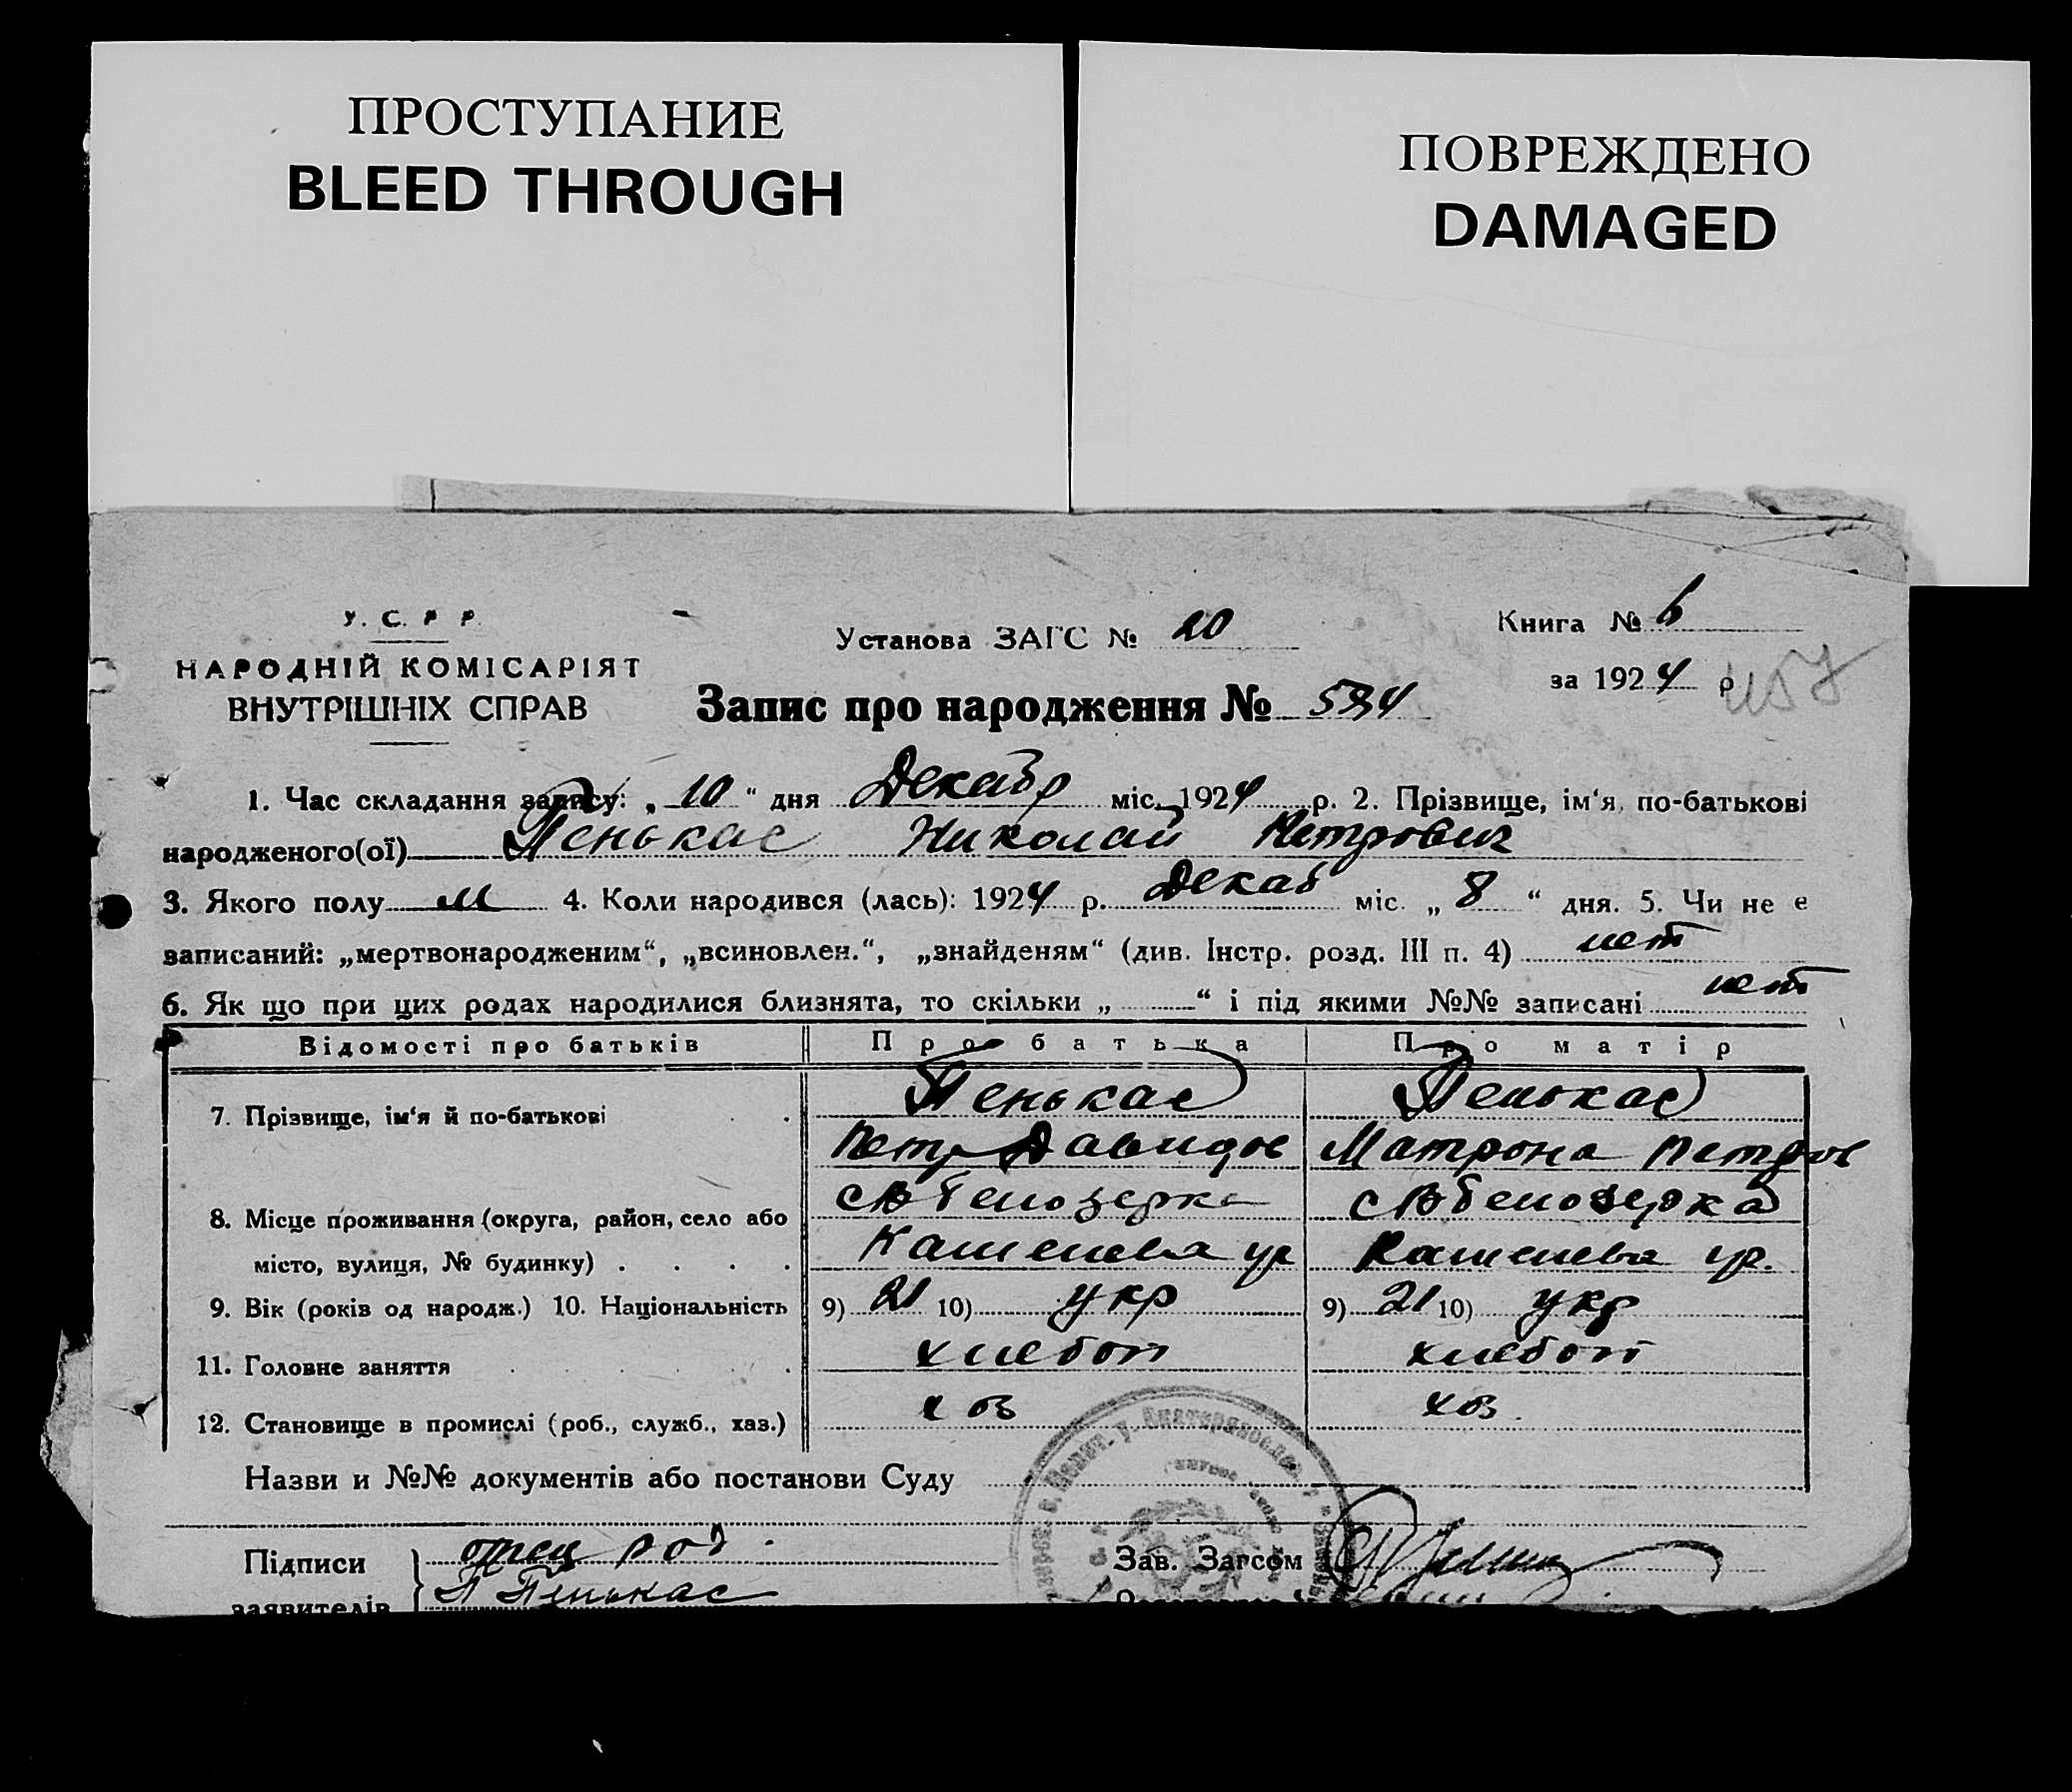 ПРОСТУПАНИЕ
BLEED THROUGH
ПОВРЕЖДЕНО
DAMAGED
У. С. Р Р.
НАРОДНІЙ КОМІСАРІЯТ
ВНУТРІШНІХ СПРАВ
Установа ЗАГС № 20
Книга № 6
за 1924 р.
Запис про народження № 534
1. Час складання запису: „ 10 “ дня Декабр міс. 1924 р. 2. Прізвище, ім‘я, по-батькові
народженого(ої) Пенькас Николай Петрович
3. Якого полу м 4. Коли народився (лась): 1924 р. Декаб міс. „ 8 “ дня. 5. Чи не є
записаний: „мертвонародженим“, „всиновлен.“, „знайденям“ (див. Інстр. розд. III п. 4) нет
6. Як що при цих родах народилися близнята, то скільки „ “ і під якими №№ записані нет
Відомості про батьків Про батька Про матір
7. Прізвище, ім‘я й по-батькові Пенькас Пенькас
Петр Давидов Матрона Петров
8. Місце проживання (округа, район, село або с Белозерка с Белозерка
місто, вулиця, № будинку)
9. Вік (років од народж.) 10. Національність 9) 21 10) укр 9) 21 10) укр
11. Головне заняття хлебоп хлебоп
12. Становище в промислі (роб., служб., хаз.) хоз хоз.
Назви и №№ документів або постанови Суду
Підписи отец
заявителів П Пенькас
Зав. Загсом